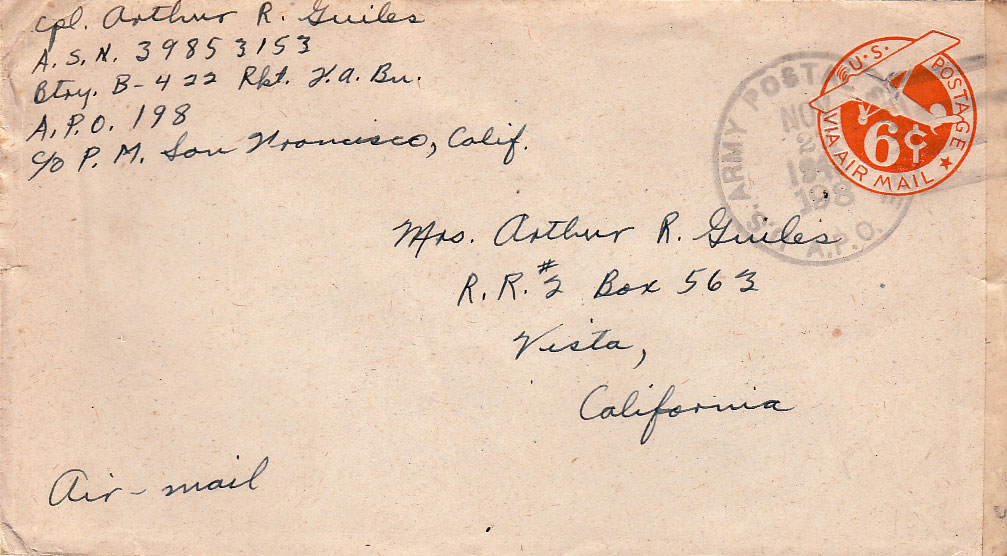 Cpl. Arthur R. Guiles
A.S.N. 39853153
Btry. B-422 Rkt. F.A. Bn.
A.P.O. 198
c/o P.M. San Francisco, Calif.
U.S. POSTAGE
VIA AIR MAIL
6¢
U.S. ARMY POSTAL
A.P.O.
NOV
198
Mrs. Arthur R. Guiles
R.R. #2 Box 563
Vista,
California
Air-mail